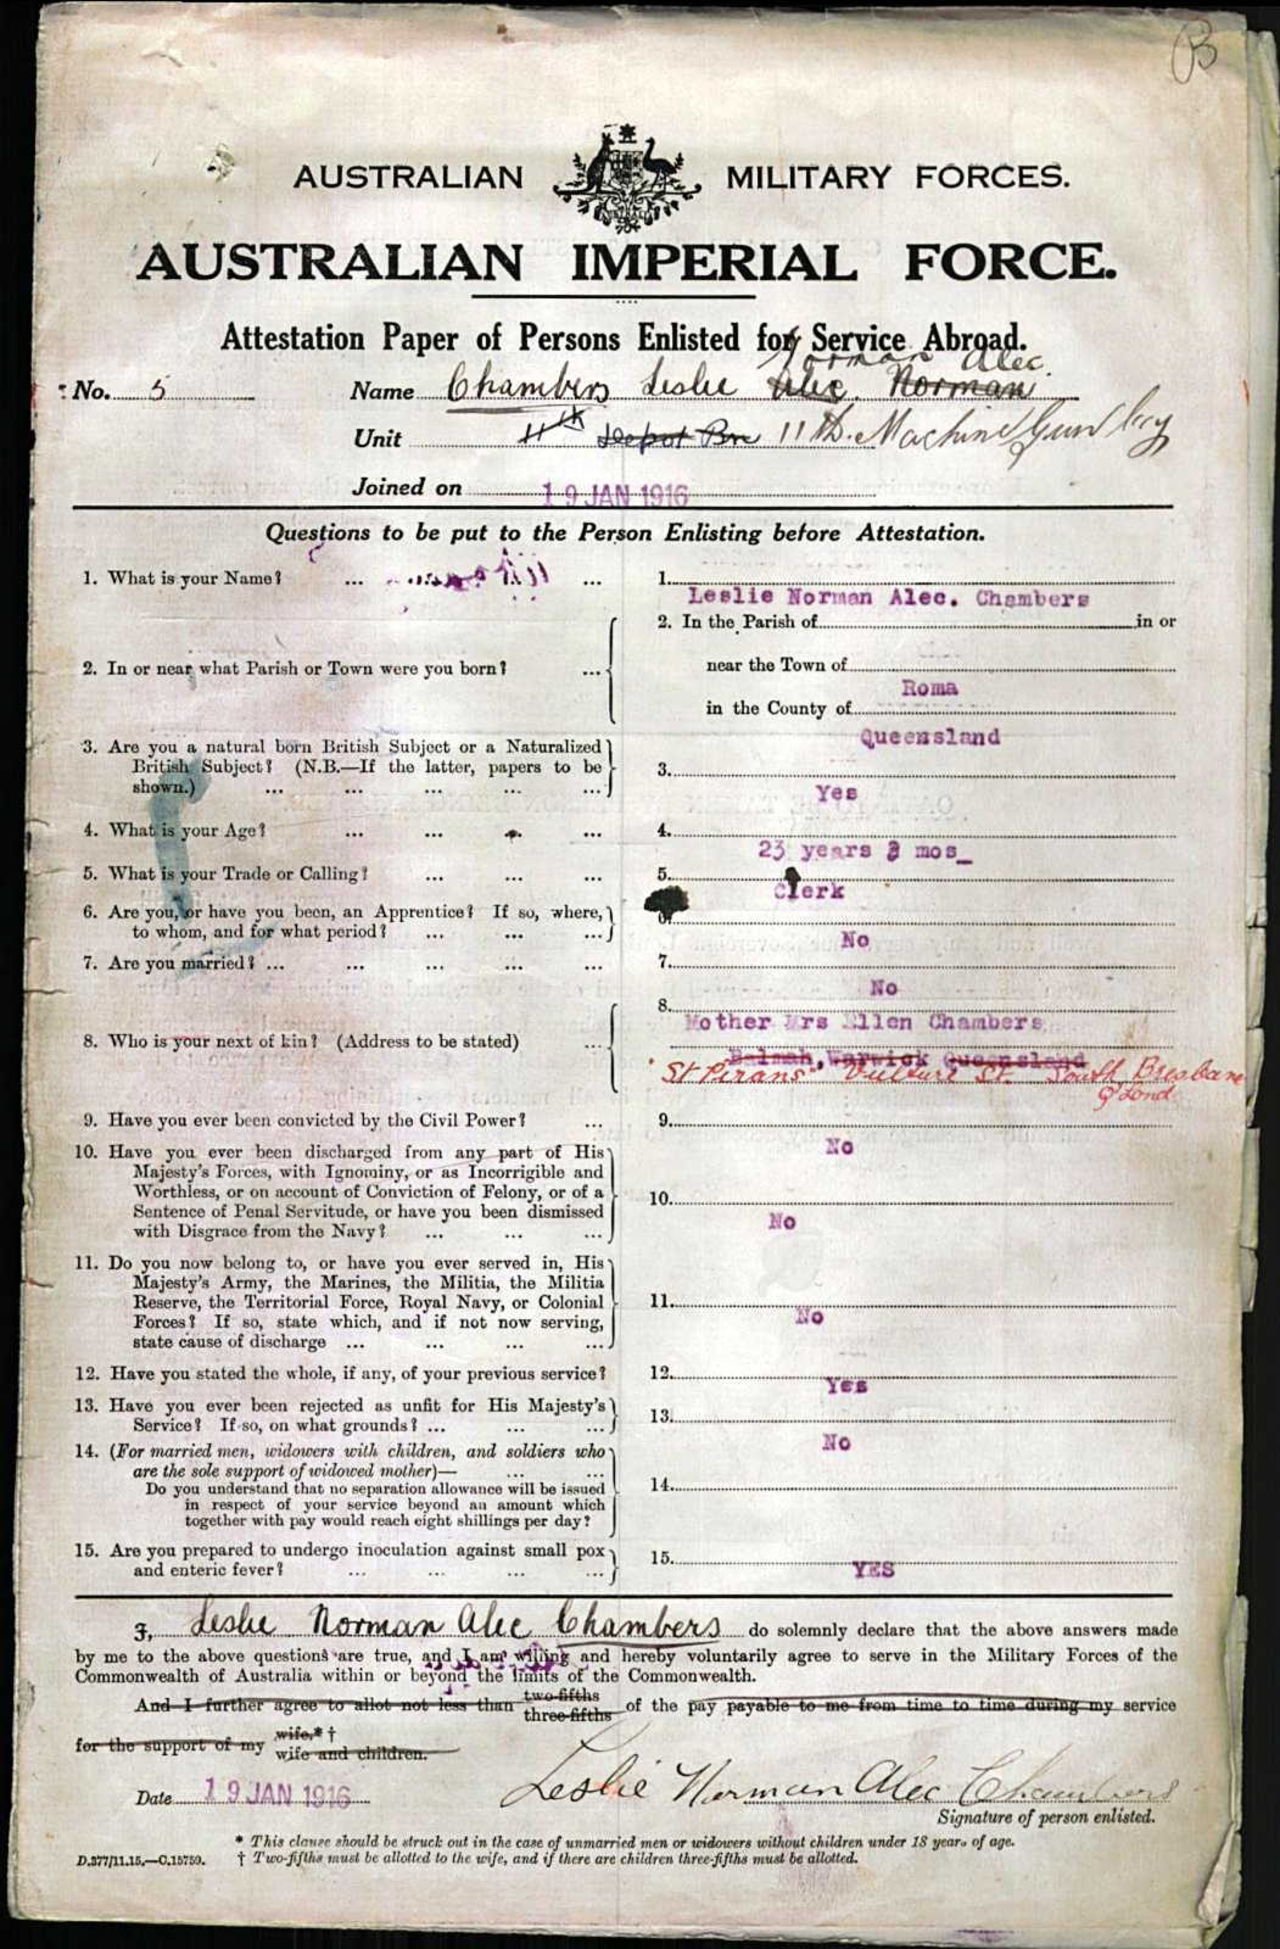 B
AUSTRALIAN MILITARY FORCES.
AUSTRALIAN IMPERIAL FORCE.
Attestation Paper of Persons Enlisted for Service Abroad.
Norman Alec.
No. 5 Name Chambers Leslie Alec. Norman
Unit 11th Depot Bn 11th. Machine Gun Coy
Joined on 19 JAN 1916
Questions to be put to the Person Enlisting before Attestation.
1. What is your Name? ... ... 1.
Leslie Norman Alec. Chambers
2. In the Parish of in or
2. In or near what Parish or Town were you born? ... near the Town of
Roma
in the County of
Queensland
3. Are you a natural born British Subject or a Naturalized
British Subject? (N.B.—If the latter, papers to be 3.
shown.) ... ... ... ... ... Yes
4. What is your Age? ... ... ... ... 4.
23 years 3 mos_
5. What is your Trade or Calling? ... ... ... 5.
Clerk
6. Are you, or have you been, an Apprentice? If so, where, 6.
to whom, and for what period? ... ... ... No
7. Are you married? ... ... ... ... ... 7.
No
8.
Mother Mrs Ellen Chambers
8. Who is your next of kin? (Address to be stated) ...
Balmah, Warwick Queensland
"St Pirans" Vulture St. South Brisbane
Q'Land
9. Have you ever been convicted by the Civil Power? ... 9.
No
10. Have you ever been discharged from any part of His
Majesty's Forces, with Ignominy, or as Incorrigible and
Worthless, or on account of Conviction of Felony, or of a 10.
Sentence of Penal Servitude, or have you been dismissed No
with Disgrace from the Navy? ... ... ...
11. Do you now belong to, or have you ever served in, His
Majesty's Army, the Marines, the Militia, the Militia
Reserve, the Territorial Force, Royal Navy, or Colonial 11.
Forces? If so, state which, and if not now serving, No
state cause of discharge ... ... ... ...
12. Have you stated the whole, if any, of your previous service? 12.
Yes
13. Have you ever been rejected as unfit for His Majesty's 13.
Service? If so, on what grounds? ... ... ... No
14. (For married men, widowers with children, and soldiers who
are the sole support of widowed mother)— ... ...
Do you understand that no separation allowance will be issued 14.
in respect of your service beyond an amount which
together with pay would reach eight shillings per day?
15. Are you prepared to undergo inoculation against small pox 15.
and enteric fever? ... ... ... ... YES
I, Leslie Norman Alec Chambers do solemnly declare that the above answers made
by me to the above questions are true, and I am willing and hereby voluntarily agree to serve in the Military Forces of the
Commonwealth of Australia within or beyond the limits of the Commonwealth.
And I further agree to allot not less than two-fifths three-fifths of the pay payable to me from time to time during my service
for the support of my wife,*† wife and children.
Date 19 JAN 1916 Leslie Norman Alec Chambers
Signature of person enlisted.
* This clause should be struck out in the case of unmarried men or widowers without children under 18 years of age.
D.377/11.15.—C.15759. † Two-fifths must be allotted to the wife, and if there are children three-fifths must be allotted.